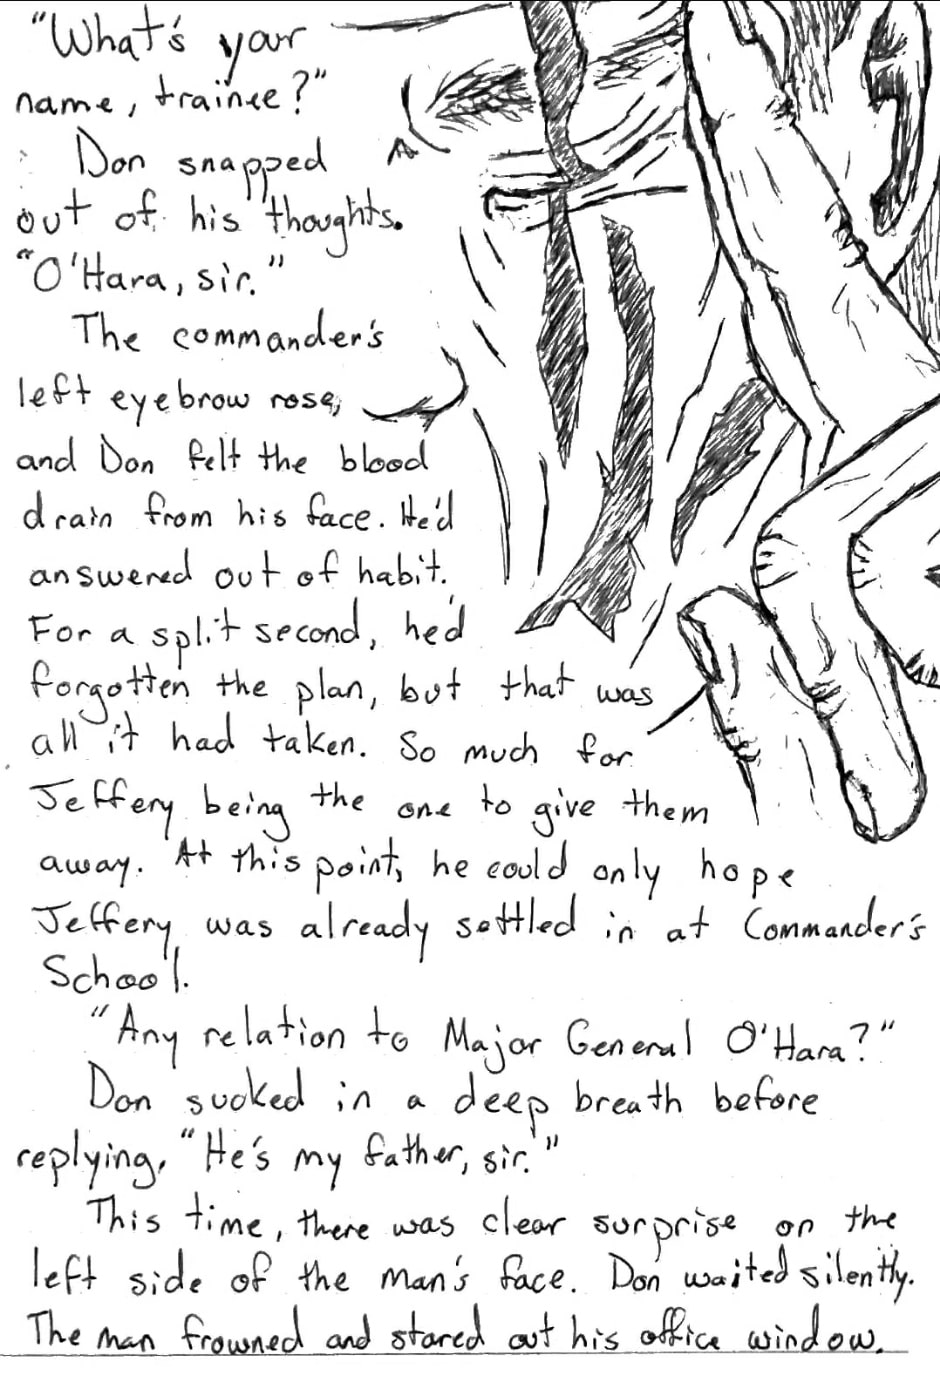 “What's your
name, trainee?”
Don snapped
out of his thoughts.
“O'Hara, sir.”
The commander's
left eyebrow rose,
and Don felt the blood
drain from his face. He'd
answered out of habit.
For a split second, he'd
forgotten the plan, but that was
all it had taken. So much for
Jeffery being the one to give them
away. At this point, he could only hope
Jeffery was already settled in at Commander's
School.
“Any relation to Major General O'Hara?”
Don sucked in a deep breath before
replying, “He's my father, sir.”
This time, there was clear surprise on the
left side of the man's face. Don waited silently.
The man frowned and stared out his office window.